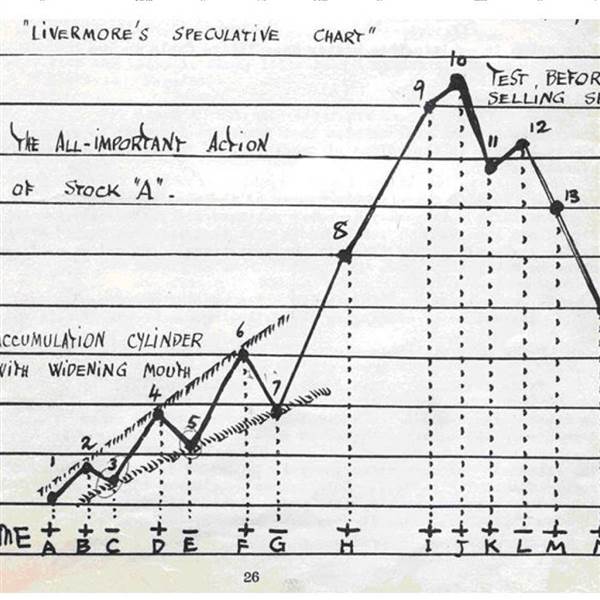 "LIVERMORE'S SPECULATIVE CHART"
10
9
TEST, BEFOR
SELLING SE
THE ALL-IMPORTANT ACTION
11
12
OF STOCK "A".
13
8
6
ACCUMULATION CYLINDER
WITH WIDENING MOUTH
4
7
5
2
1
3
ME
A B C D E F G H I J K L M
26